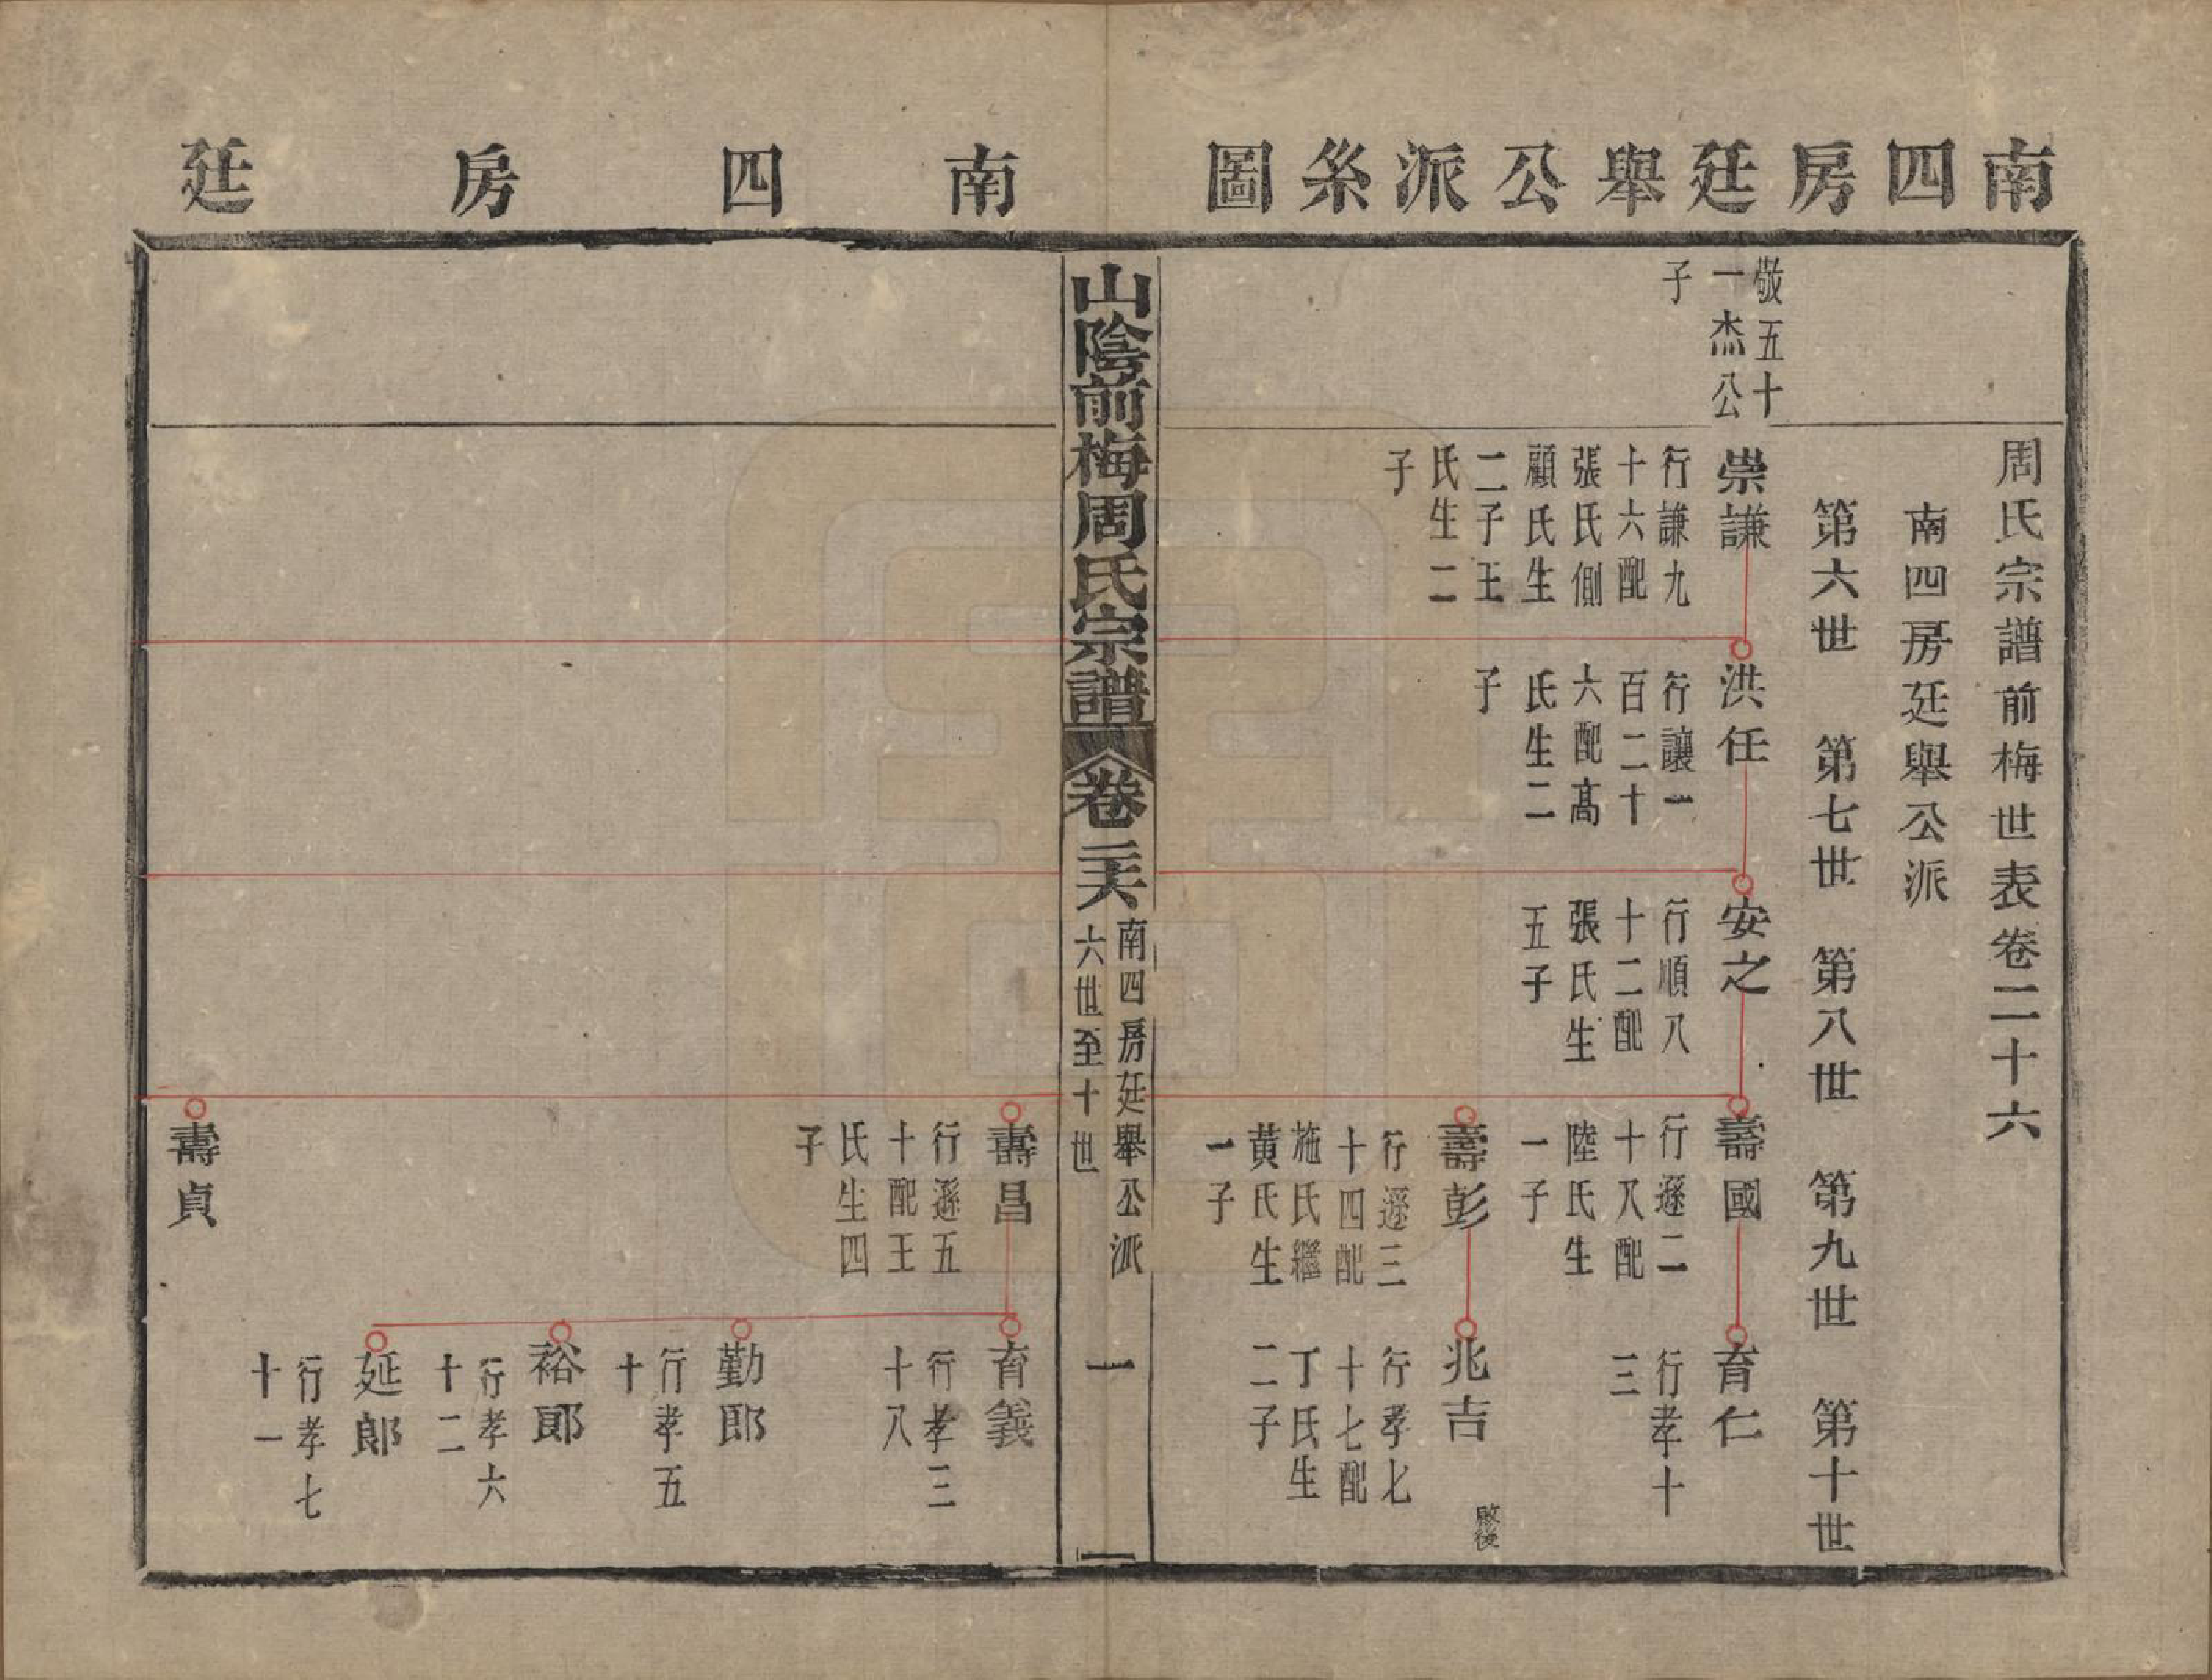 南四房廷舉公派系圖
周氏宗譜前梅世表卷二十六
南四房廷舉公派
第六世 第七世 第八世 第九世 第十世
敬五十
一杰公
子
崇謙
行謙九
十六配
張氏側
顧氏生
二子王
氏生二
子
洪任
行讓一
百二十
六配高
氏生二
子
安之
行順八
十二配
張氏生
五子
壽國
行遜二
十八配
陸氏生
一子
育仁
行孝十
三
壽彭
行遜三
十四配
施氏繼
黃氏生
一子
兆吉
啟後
行孝七
十七配
丁氏生
二子
山陰前梅周氏宗譜
卷二六
南四房廷舉公派
六世至十世
一
南四房廷
壽昌
行遜五
十配王
氏生四
子
育義
行孝三
十八
勤郎
行孝五
十
裕郎
行孝六
十二
延郎
行孝七
十一
壽貞